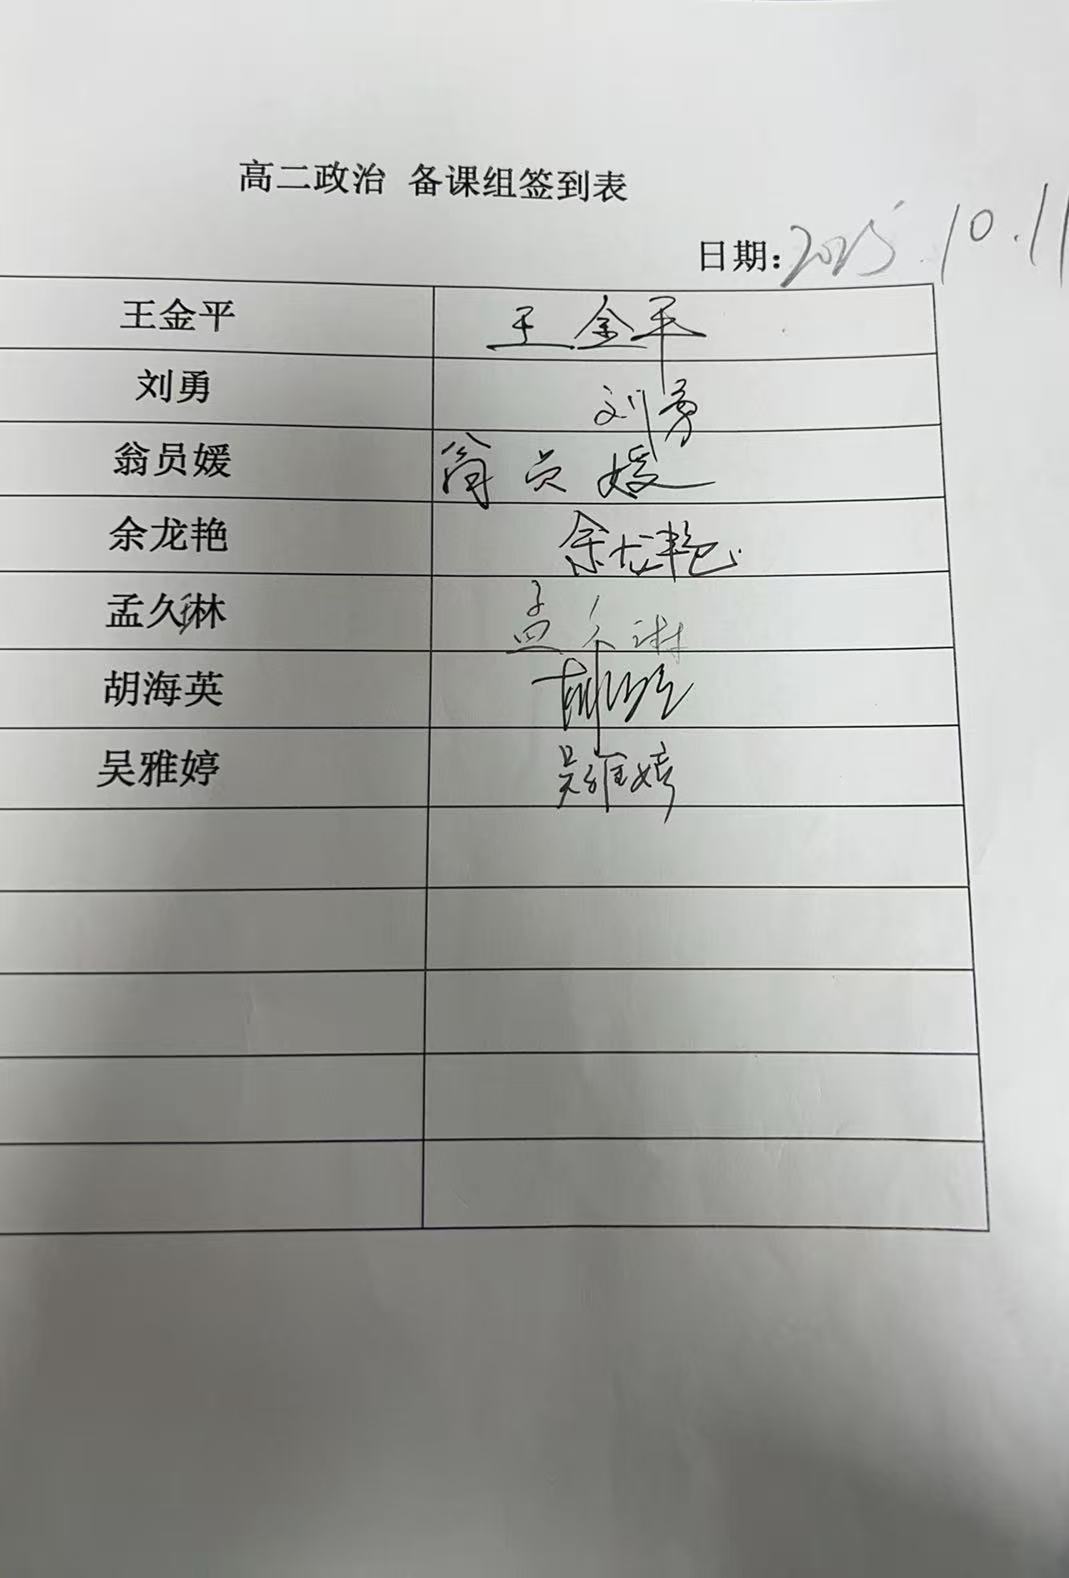 高二政治 备课组签到表
日期: 2025.10.11
王金平 王金平
刘勇 刘勇
翁员媛 翁员媛
余龙艳 余龙艳
孟久琳 孟久琳
胡海英 胡海英
吴雅婷 吴雅婷